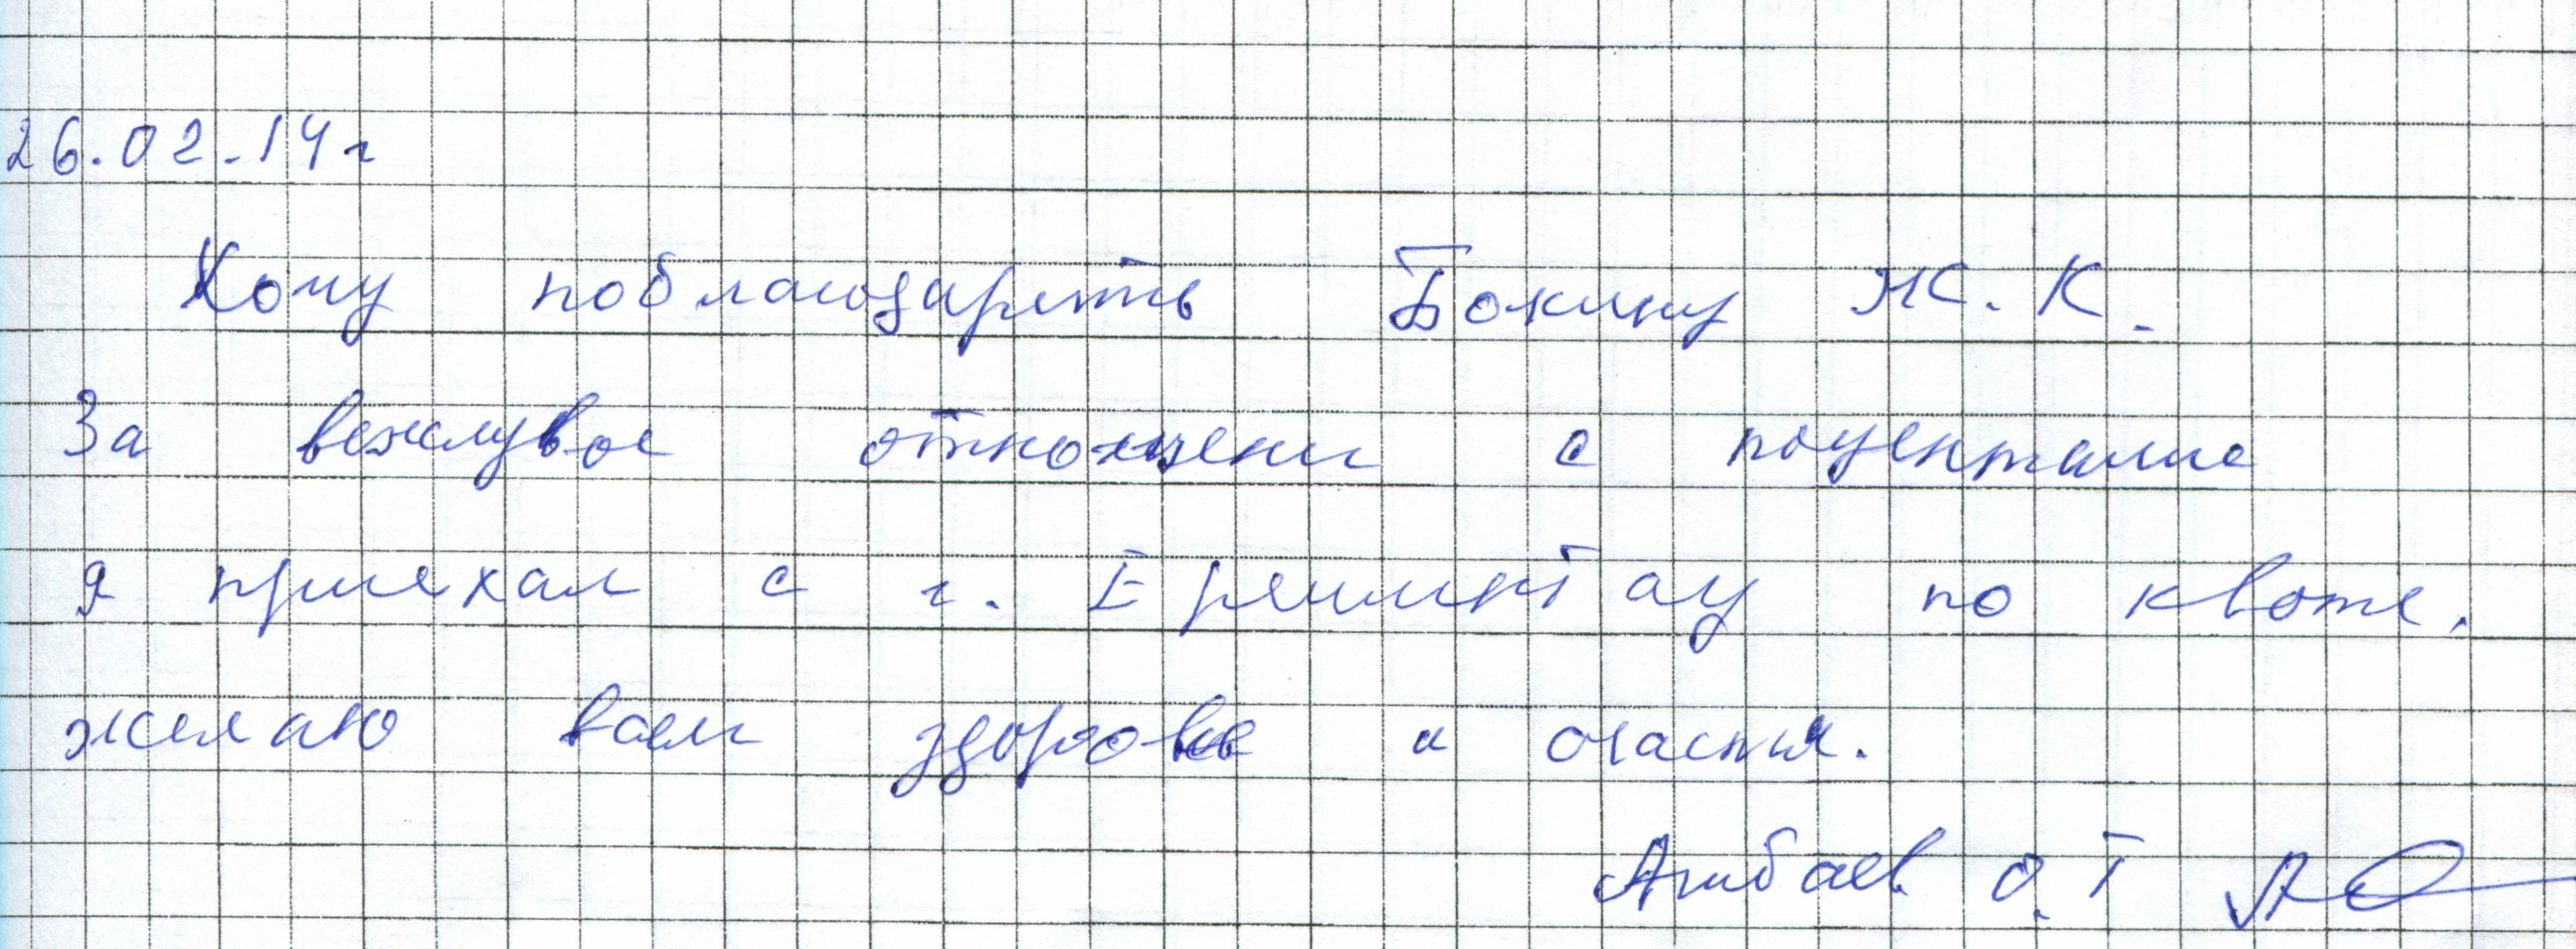 26.02.14г
Хочу поблагодарить Бокину Ж.К.
За вежлувое отношени с поцентами
я приехал с г. Ерейментау по квоте.
желаю вам здоровье и счастья.
О.Т